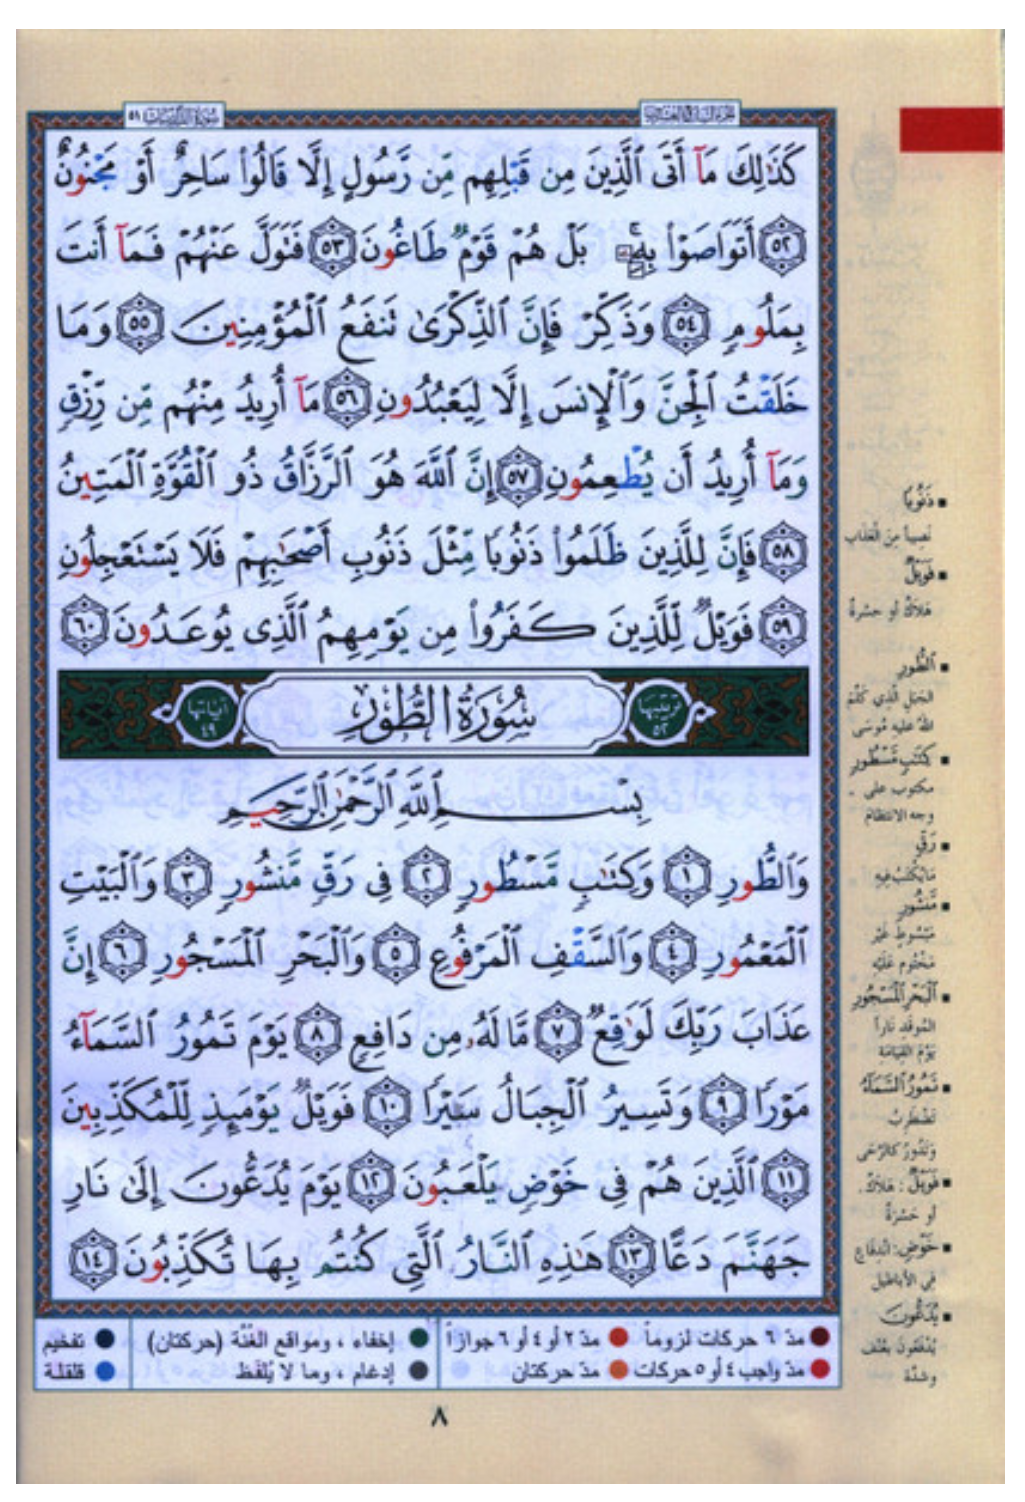 سورة الذاريات ٥١
الجزء السابع والعشرون
كَذَٰلِكَ مَآ أَتَى ٱلَّذِينَ مِن قَبۡلِهِم مِّن رَّسُولٍ إِلَّا قَالُواْ سَاحِرٌ أَوۡ مَجۡنُونٌ
٥٢ أَتَوَاصَوۡاْ بِهِۦۚ بَلۡ هُمۡ قَوۡمٞ طَاغُونَ ٥٣ فَتَوَلَّ عَنۡهُمۡ فَمَآ أَنتَ
بِمَلُومٖ ٥٤ وَذَكِّرۡ فَإِنَّ ٱلذِّكۡرَىٰ تَنفَعُ ٱلۡمُؤۡمِنِينَ ٥٥ وَمَا
خَلَقۡتُ ٱلۡجِنَّ وَٱلۡإِنسَ إِلَّا لِيَعۡبُدُونِ ٥٦ مَآ أُرِيدُ مِنۡهُم مِّن رِّزۡقٖ
وَمَآ أُرِيدُ أَن يُطۡعِمُونِ ٥٧ إِنَّ ٱللَّهَ هُوَ ٱلرَّزَّاقُ ذُو ٱلۡقُوَّةِ ٱلۡمَتِينُ
٥٨ فَإِنَّ لِلَّذِينَ ظَلَمُواْ ذَنُوبٗا مِّثۡلَ ذَنُوبِ أَصۡحَٰبِهِمۡ فَلَا يَسۡتَعۡجِلُونِ
٥٩ فَوَيۡلٞ لِّلَّذِينَ كَفَرُواْ مِن يَوۡمِهِمُ ٱلَّذِي يُوعَدُونَ ٦٠
ترتيبها ٥٢ سُورَةُ الطُّورِ آياتها ٤٩
بِسۡمِ ٱللَّهِ ٱلرَّحۡمَٰنِ ٱلرَّحِيمِ
وَٱلطُّورِ ١ وَكِتَٰبٖ مَّسۡطُورٖ ٢ فِي رَقّٖ مَّنشُورٖ ٣ وَٱلۡبَيۡتِ
ٱلۡمَعۡمُورِ ٤ وَٱلسَّقۡفِ ٱلۡمَرۡفُوعِ ٥ وَٱلۡبَحۡرِ ٱلۡمَسۡجُورِ ٦ إِنَّ
عَذَابَ رَبِّكَ لَوَٰقِعٞ ٧ مَّا لَهُۥ مِن دَافِعٖ ٨ يَوۡمَ تَمُورُ ٱلسَّمَآءُ
مَوۡرٗا ٩ وَتَسِيرُ ٱلۡجِبَالُ سَيۡرٗا ١٠ فَوَيۡلٞ يَوۡمَئِذٖ لِّلۡمُكَذِّبِينَ
١١ ٱلَّذِينَ هُمۡ فِي خَوۡضٖ يَلۡعَبُونَ ١٢ يَوۡمَ يُدَعُّونَ إِلَىٰ نَارِ
جَهَنَّمَ دَعًّا ١٣ هَٰذِهِ ٱلنَّارُ ٱلَّتِي كُنتُم بِهَا تُكَذِّبُونَ ١٤
ذَنُوبًا
نصيباً من العَذَاب
فَوَيۡلٌ
هَلاكٌ أو حسْرةٌ
ٱلطُّورِ
الجَبَلِ الَّذِي كَلَّمَ
اللهُ عليه مُوسَى
كِتَٰبٍ مَّسۡطُورٍ
مكتوب على
وجه الانتظام
رَقٍّ
مَا يُكْتَبُ فيهِ
مَّنشُورٍ
مَبْسُوطٍ غَيْرِ
مَخْتُومٍ عَلَيْهِ
ٱلۡبَحۡرِ ٱلۡمَسۡجُورِ
المُوقَدِ نَاراً
يَوْمَ القِيَامَة
تَمُورُ ٱلسَّمَآءُ
تَضْطَرِبُ
وَتَدُورُ كالرَّحَى
فَوَيۡلٌ: هَلَاكٌ.
أو حَسْرَةٌ
خَوۡضٍ: انْدِفَاعٍ
في الأباطيل
يُدَعُّونَ
يُدْفَعُونَ بعُنْف
وشدّة
مدّ ٦ حركات لزوماً مدّ ٢ أو ٤ أو ٦ جوازاً إخفاء ، ومواقع الغُنَّة (حركتان) تفخيم
مدّ واجب ٤ أو ٥ حركات مدّ حركتان إدغام ، وما لا يُلفَظ قلقلة
٨